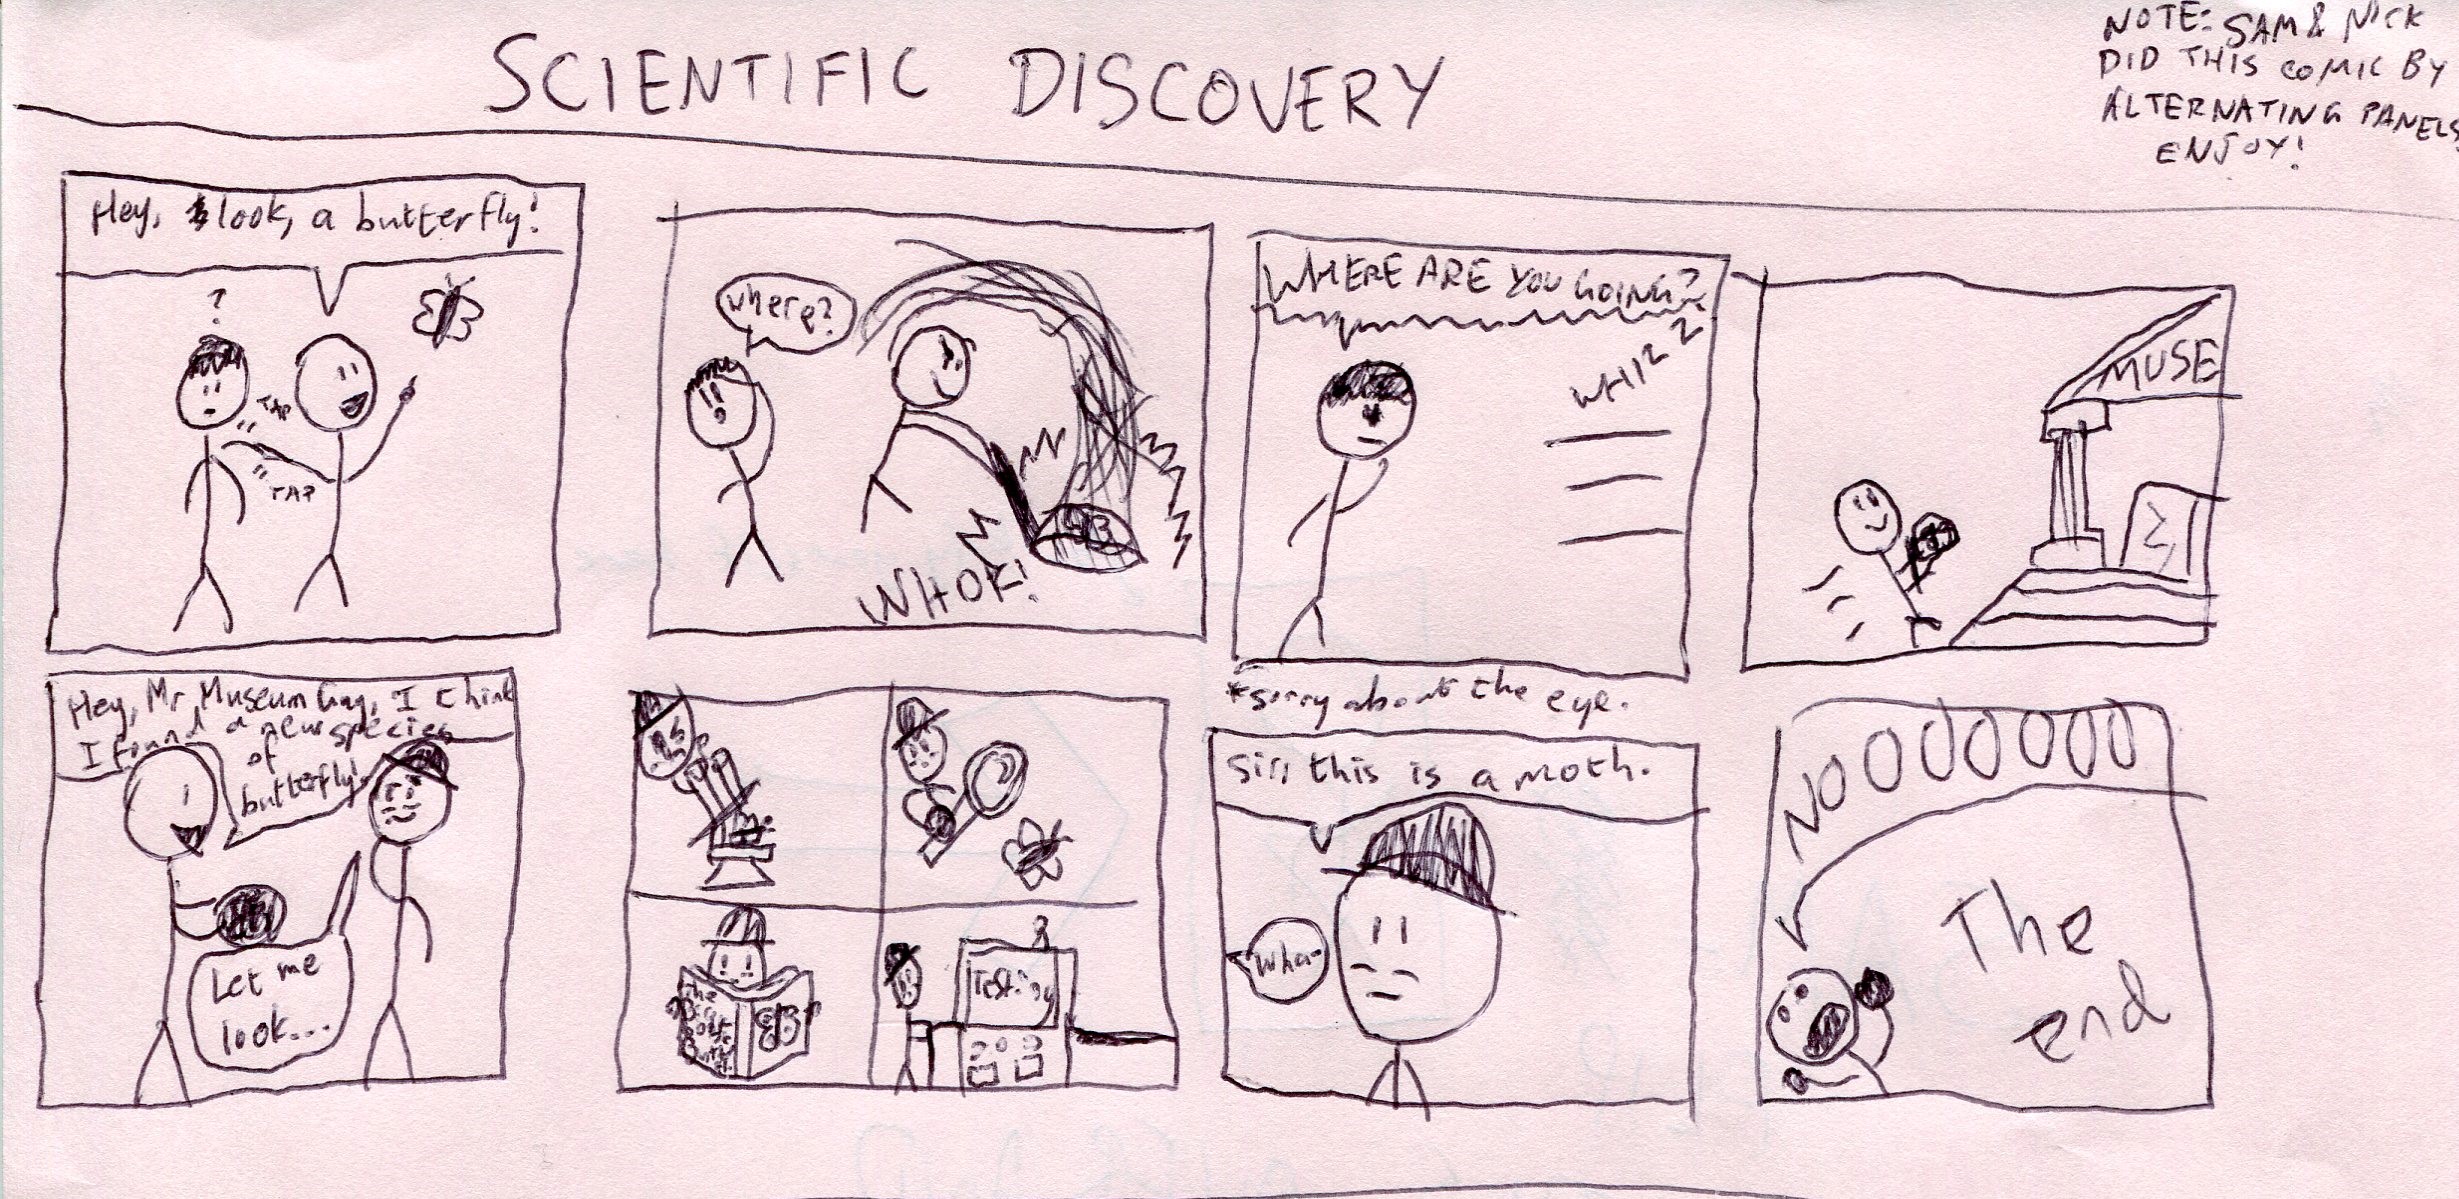 SCIENTIFIC DISCOVERY
NOTE: SAM & NICK
DID THIS COMIC BY
ALTERNATING PANELS,
ENJOY!
Hey, look, a butterfly!
?
TAP
TAP
where?
WHOK!
WHERE ARE YOU GOING?
WHIZZ
MUSE
Hey, Mr Museum Guy, I think
I found a new species
of
butterfly!
Let me
look...
The
Testing
*sorry about the eye.
Sir, this is a moth.
Wha-
NOOOOOOO
The
end